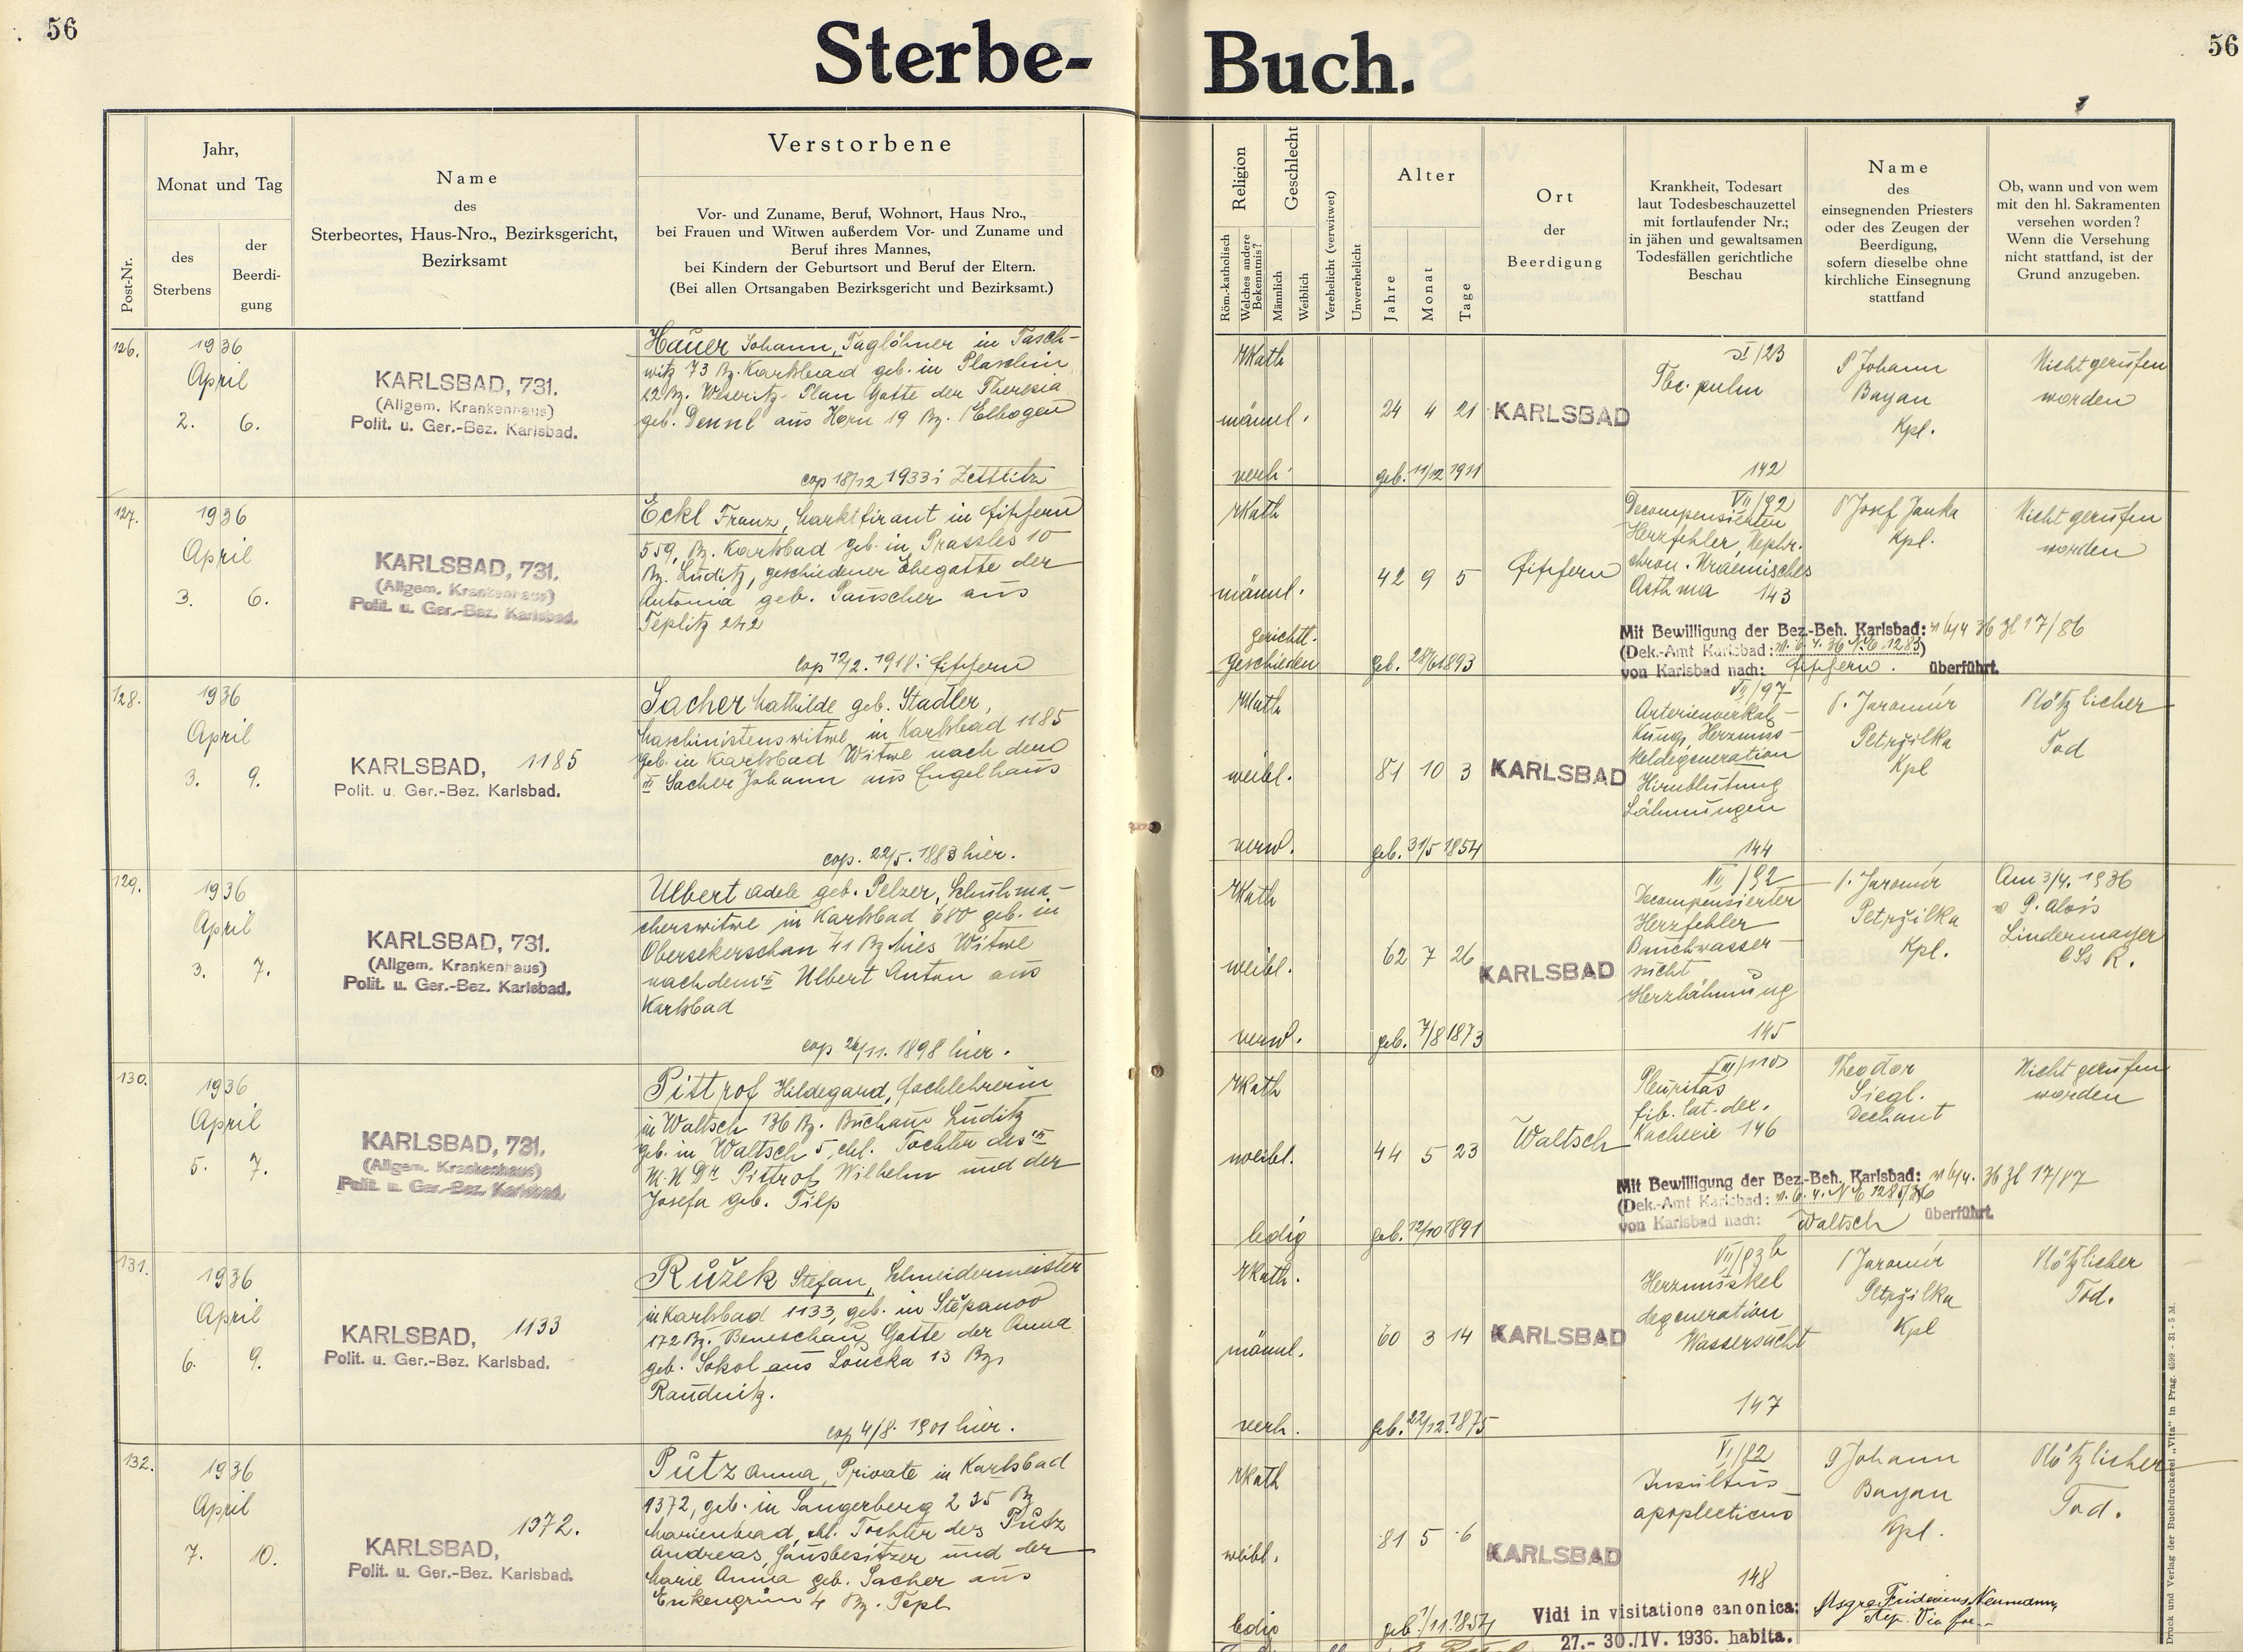 56
Sterbe-
Buch.
56
Post-Nr.
Jahr,
Monat und Tag
des
Sterbens
der
Beerdi-
gung
Name
des
Sterbeortes, Haus-Nro., Bezirksgericht,
Bezirksamt
Verstorbene
Vor- und Zuname, Beruf, Wohnort, Haus Nro.,
bei Frauen und Witwen außerdem Vor- und Zuname und
Beruf ihres Mannes,
bei Kindern der Geburtsort und Beruf der Eltern.
(Bei allen Ortsangaben Bezirksgericht und Bezirksamt.)
Religion
Röm.-katholisch
Welches andere
Bekenntnis?
Geschlecht
Männlich
Weiblich
Verehelicht (verwitwet)
Unverehelicht
Alter
Jahre
Monat
Tage
Ort
der
Beerdigung
Krankheit, Todesart
laut Todesbeschauzettel
mit fortlaufender Nr.;
in jähen und gewaltsamen
Todesfällen gerichtliche
Beschau
Name
des
einsegnenden Priesters
oder des Zeugen der
Beerdigung,
sofern dieselbe ohne
kirchliche Einsegnung
stattfand
Ob, wann und von wem
mit den hl. Sakramenten
versehen worden?
Wenn die Versehung
nicht stattfand, ist der
Grund anzugeben.
126.
1936
April
2. 6.
KARLSBAD, 731.
(Allgem. Krankenhaus)
Polit. u. Ger.-Bez. Karlsbad.
Hauer Johann, Taglöhner in Tasch-
witz 73 Bz. Karlsbad geb. in Plaschin
22 Bz. Weseritz-Plan Gatte der Theresia
geb. Dennl aus Horn 19 Bz. Elbogen
cop 18/12 1933 i Zettlitz
rKath
männl.
verh.
24 4 21
geb. 11/12 1911
KARLSBAD
Tbc. pulm
142
P Johann
Bayan
Kpl.
Nicht gerufen
worden
127.
1936
April
3. 6.
KARLSBAD, 731.
(Allgem. Krankenhaus)
Polit. u. Ger.-Bez. Karlsbad.
Eckl Franz, Marktfirant in Fischern
559, Bz. Karlsbad geb. in Prassles 10
Bz. Luditz, geschiedener Ehegatte der
Antonia geb. Pauscher aus
Teplitz 242
cop 12/2. 1918 i Fischern
rKath
männl.
gerichtl.
geschieden
42 9 5
geb. 28/6 1893
Fischern
VII/92
Decompensierten
Herzfehler, Nephr.
chron. Uraemisches
Asthma 143
Mit Bewilligung der Bez.-Beh. Karlsbad: v 6/4 36 Zl 17/86
(Dek.-Amt Karlsbad: v. 6. 4. 36 No 1283)
von Karlsbad nach: Fischern. überführt.
P Josef Janka
Kpl.
Nicht gerufen
worden
128.
1936
April
3. 9.
KARLSBAD, 1185
Polit. u. Ger.-Bez. Karlsbad.
Sacher Mathilde geb. Stadler,
Maschinistenswitwe in Karlsbad 1185
geb. in Karlsbad Witwe nach dem
Sacher Johann aus Engelhaus
cop. 22/5. 1883 hier.
rKath
weibl.
verw.
81 10 3
geb. 31/5 1854
KARLSBAD
VII/97
Arterienverkal-
kung, Herzmus-
keldegeneration
Hirnblutung
Lähmungen
144
P. Jaromír
Petržilka
Kpl
Plötzlicher
Tod
129.
1936
April
3. 7.
KARLSBAD, 731.
(Allgem. Krankenhaus)
Polit. u. Ger.-Bez. Karlsbad.
Ulbert Adele geb. Pelzer, Schuhma-
cherswitwe in Karlsbad 680 geb. in
Obersekerschan 41 Bz Mies Witwe
nach dem Ulbert Anton aus
Karlsbad
cop 26/11. 1898 hier.
rKath
weibl.
verw.
62 7 26
geb. 7/8 1873
KARLSBAD
VII/92
Decompensierter
Herzfehler
Bauchwasser-
sucht
Herzlähmung
145
P. Jaromír
Petržilka
Kpl.
Am 3/4. 1936
v P. Alois
Lindermayer
CSs R.
130.
1936
April
5. 7.
KARLSBAD, 731.
(Allgem. Krankenhaus)
Polit. u. Ger.-Bez. Karlsbad.
Pittrof Hildegard, Fachlehrerin
in Waltsch 136 Bz. Buchau Luditz
geb. in Waltsch 5, ehl. Tochter des
M.U.Dr Pittrof Wilhelm und der
Josefa geb. Tilp
rKath
weibl.
ledig
44 5 23
geb. 12/10 1891
Waltsch
VIII/110
Pleuritas
fib. lat. dex.
Kachexie 146
Mit Bewilligung der Bez.-Beh. Karlsbad: v 6/4. 36 Zl 17/87
(Dek.-Amt Karlsbad: v. 6. 4. No 1285/36
von Karlsbad nach: Waltsch überführt.
Theodor
Siegl.
Dechant
Nicht gerufen
worden
131.
1936
April
6. 9.
KARLSBAD, 1133
Polit. u. Ger.-Bez. Karlsbad.
Růžek Stefan, Schneidermeister
in Karlsbad 1133, geb. in Štěpanov
172 Bz. Beneschau, Gatte der Anna
geb. Sokol aus Loucka 13 Bz.
Raudnitz.
cop 4/8. 1901 hier.
rKath.
männl.
verh.
60 3 14
geb. 22/12. 1875
KARLSBAD
VII/93b
Herzmuskel
degeneration
Wassersucht
147
P Jaromír
Petržilka
Kpl
Plötzlicher
Tod.
132.
1936
April
7. 10.
1372.
KARLSBAD,
Polit. u. Ger.-Bez. Karlsbad.
Pütz Anna, Private in Karlsbad
1372, geb. in Sangerberg 235 Bz
Marienbad, ehl. Tochter des Pütz
Andreas, Hausbesitzer und der
Marie Anna geb. Sacher aus
Enkengrün 4 Bz. Tepl
rKath
weibl.
ledig
81 5 6
geb. 1/11. 1854
KARLSBAD
VI/82
Insultus
apoplecticus
148
P Johann
Bayan
Kpl.
Plötzlicher
Tod.
Vidi in visitatione canonica:
27.- 30./IV. 1936. habita.
Neumann,
Druck und Verlag der Buchdruckerei „Vita" in Prag. 4599 - 31 - 5 M.